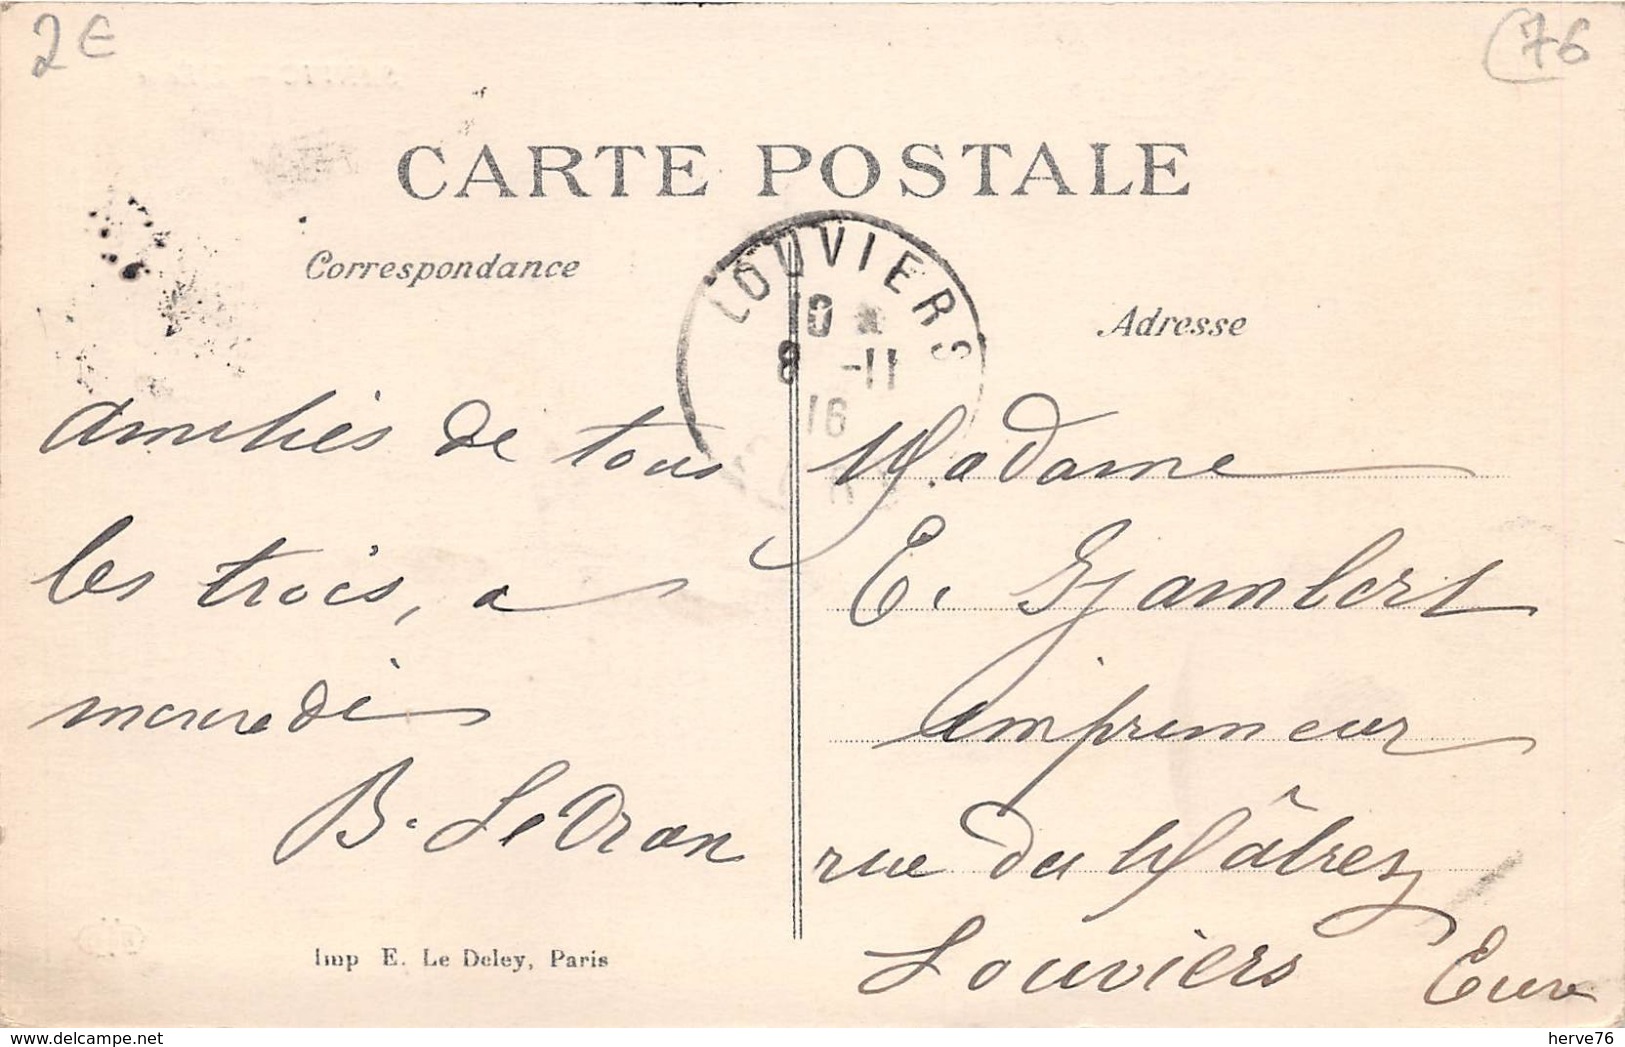 2€
(76
CARTE POSTALE
Correspondance
Adresse
LOUVIERS
10 *
8 -11
16
amitiés de tous
les trois, a
mercredi
B. Le Dran
Madame
E. Gjambert
imprimeur
rue du Mâtrey
Louviers Eure
Imp E. Le Deley, Paris
www.delcampe.net
herve76